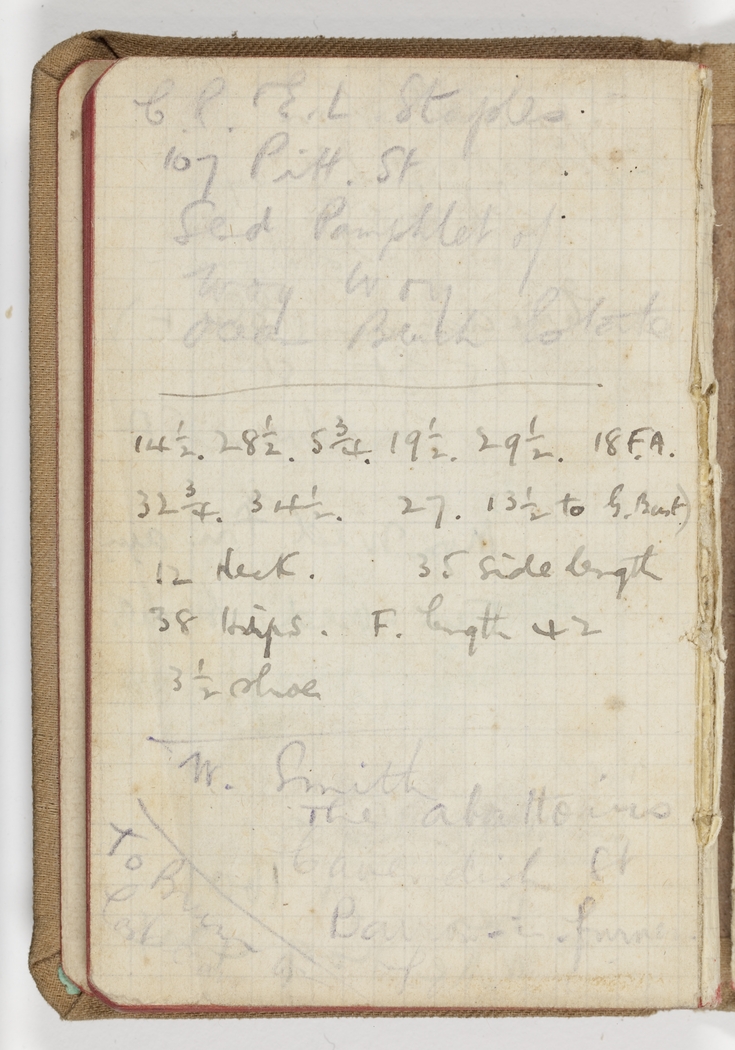 E.L Staples
107 Pitt. St
Send Pamphlet of
Woy Woy
Ocean Beach Estate
14½. 28½. 5¾. 19½. 29½. 18 F.A.
32¾. 34½. 27. 13½ to G. Bust)
12 Neck. 35 side length
38 Hips. F. length 42
3½ shoe
W. Smith
The abattoirs
Cavendish St
Barrow-in-Furne
To